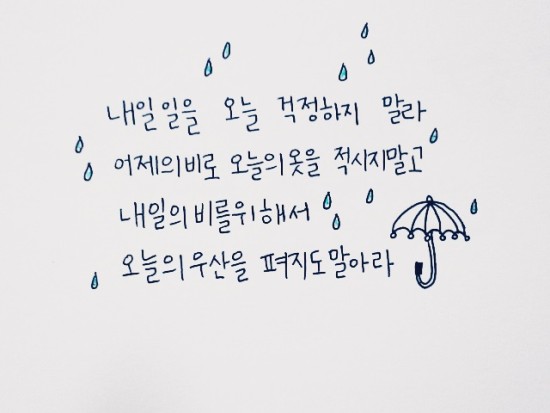 내일 일을 오늘 걱정하지 말라
어제의 비로 오늘의 옷을 적시지말고
내일의 비를위해서
오늘의 우산을 펴지도말아라